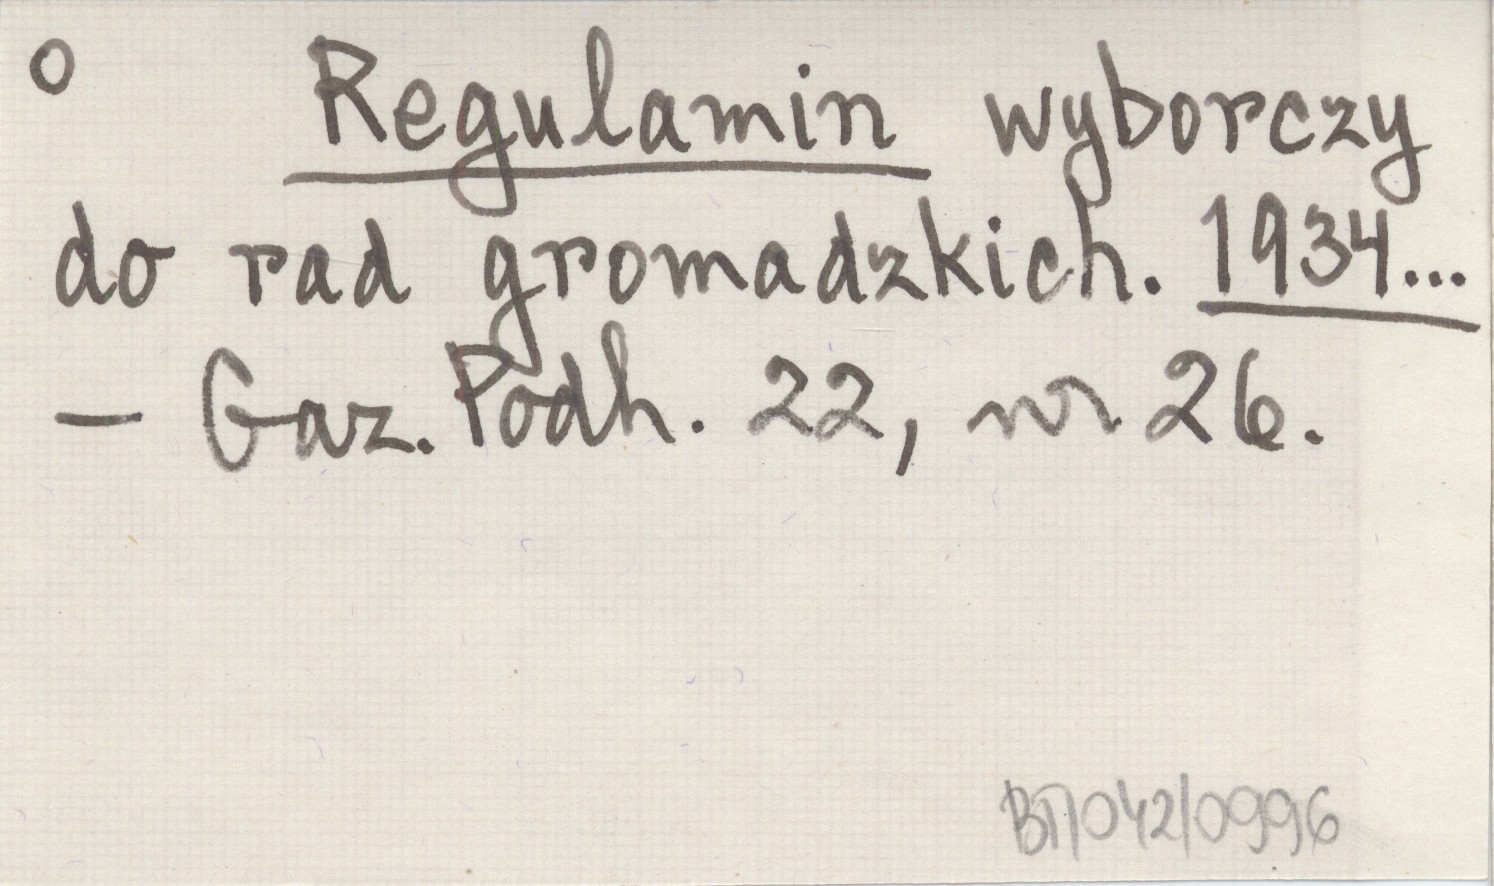 o Regulamin wyborczy
do rad gromadzkich. 1934...
- Gaz. Podh. 22, nr 26.
BT/042/0996